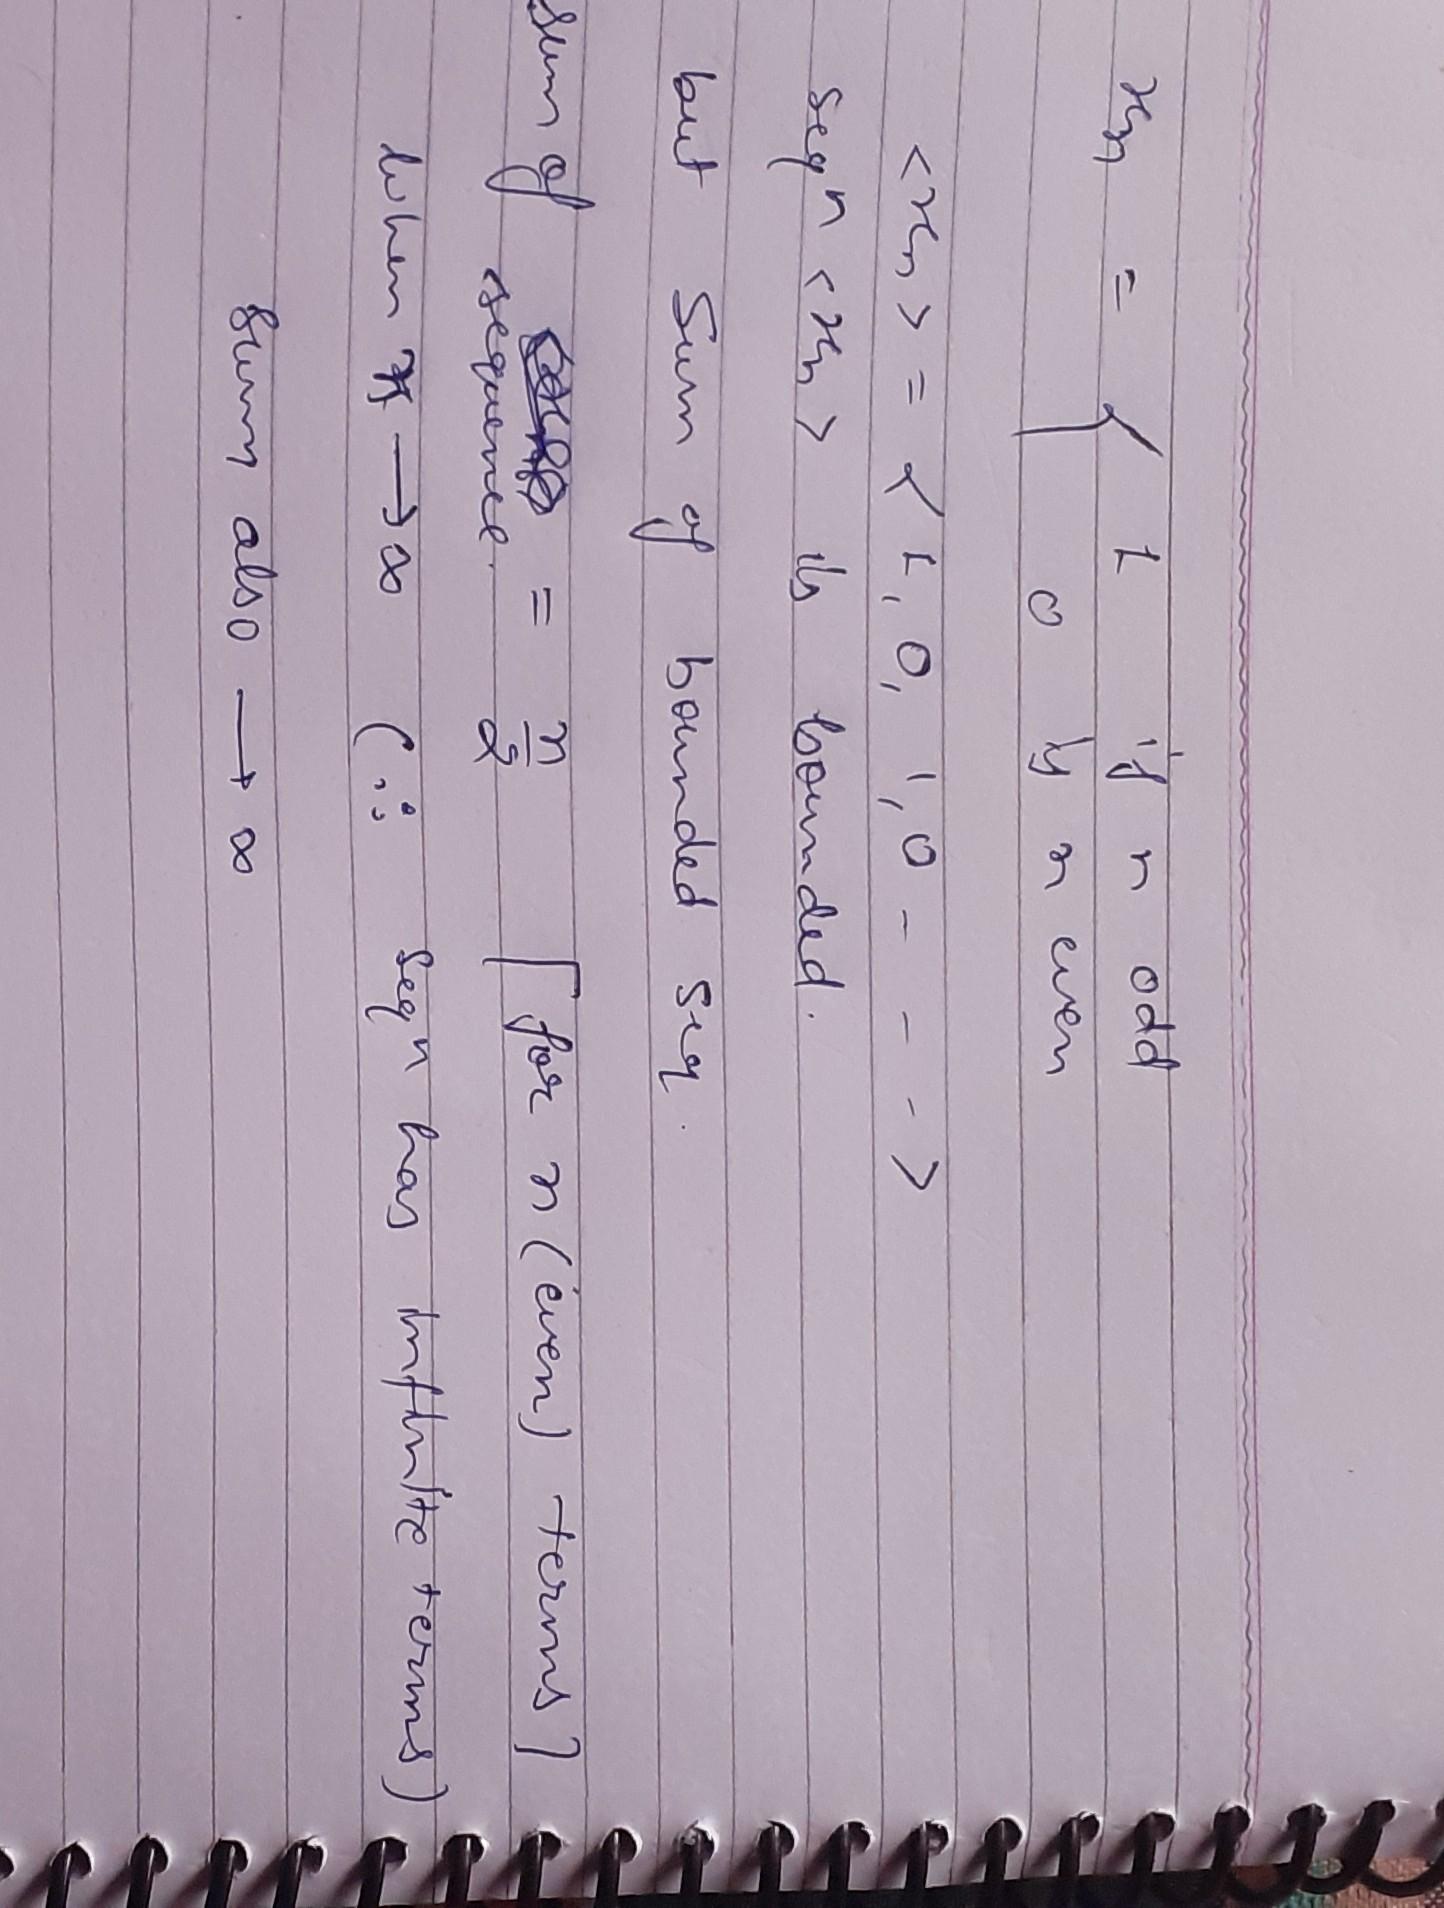 xn = { 1 if n odd
0 if n even
<xn> = < 1, 0, 1, 0 - - - >
seqn <xn> is bounded.
but Sum of bounded seq.
Sum of sequence = n/2 [for n (even) terms]
when n → ∞ (∵ seqn has infinite terms)
Sum also → ∞